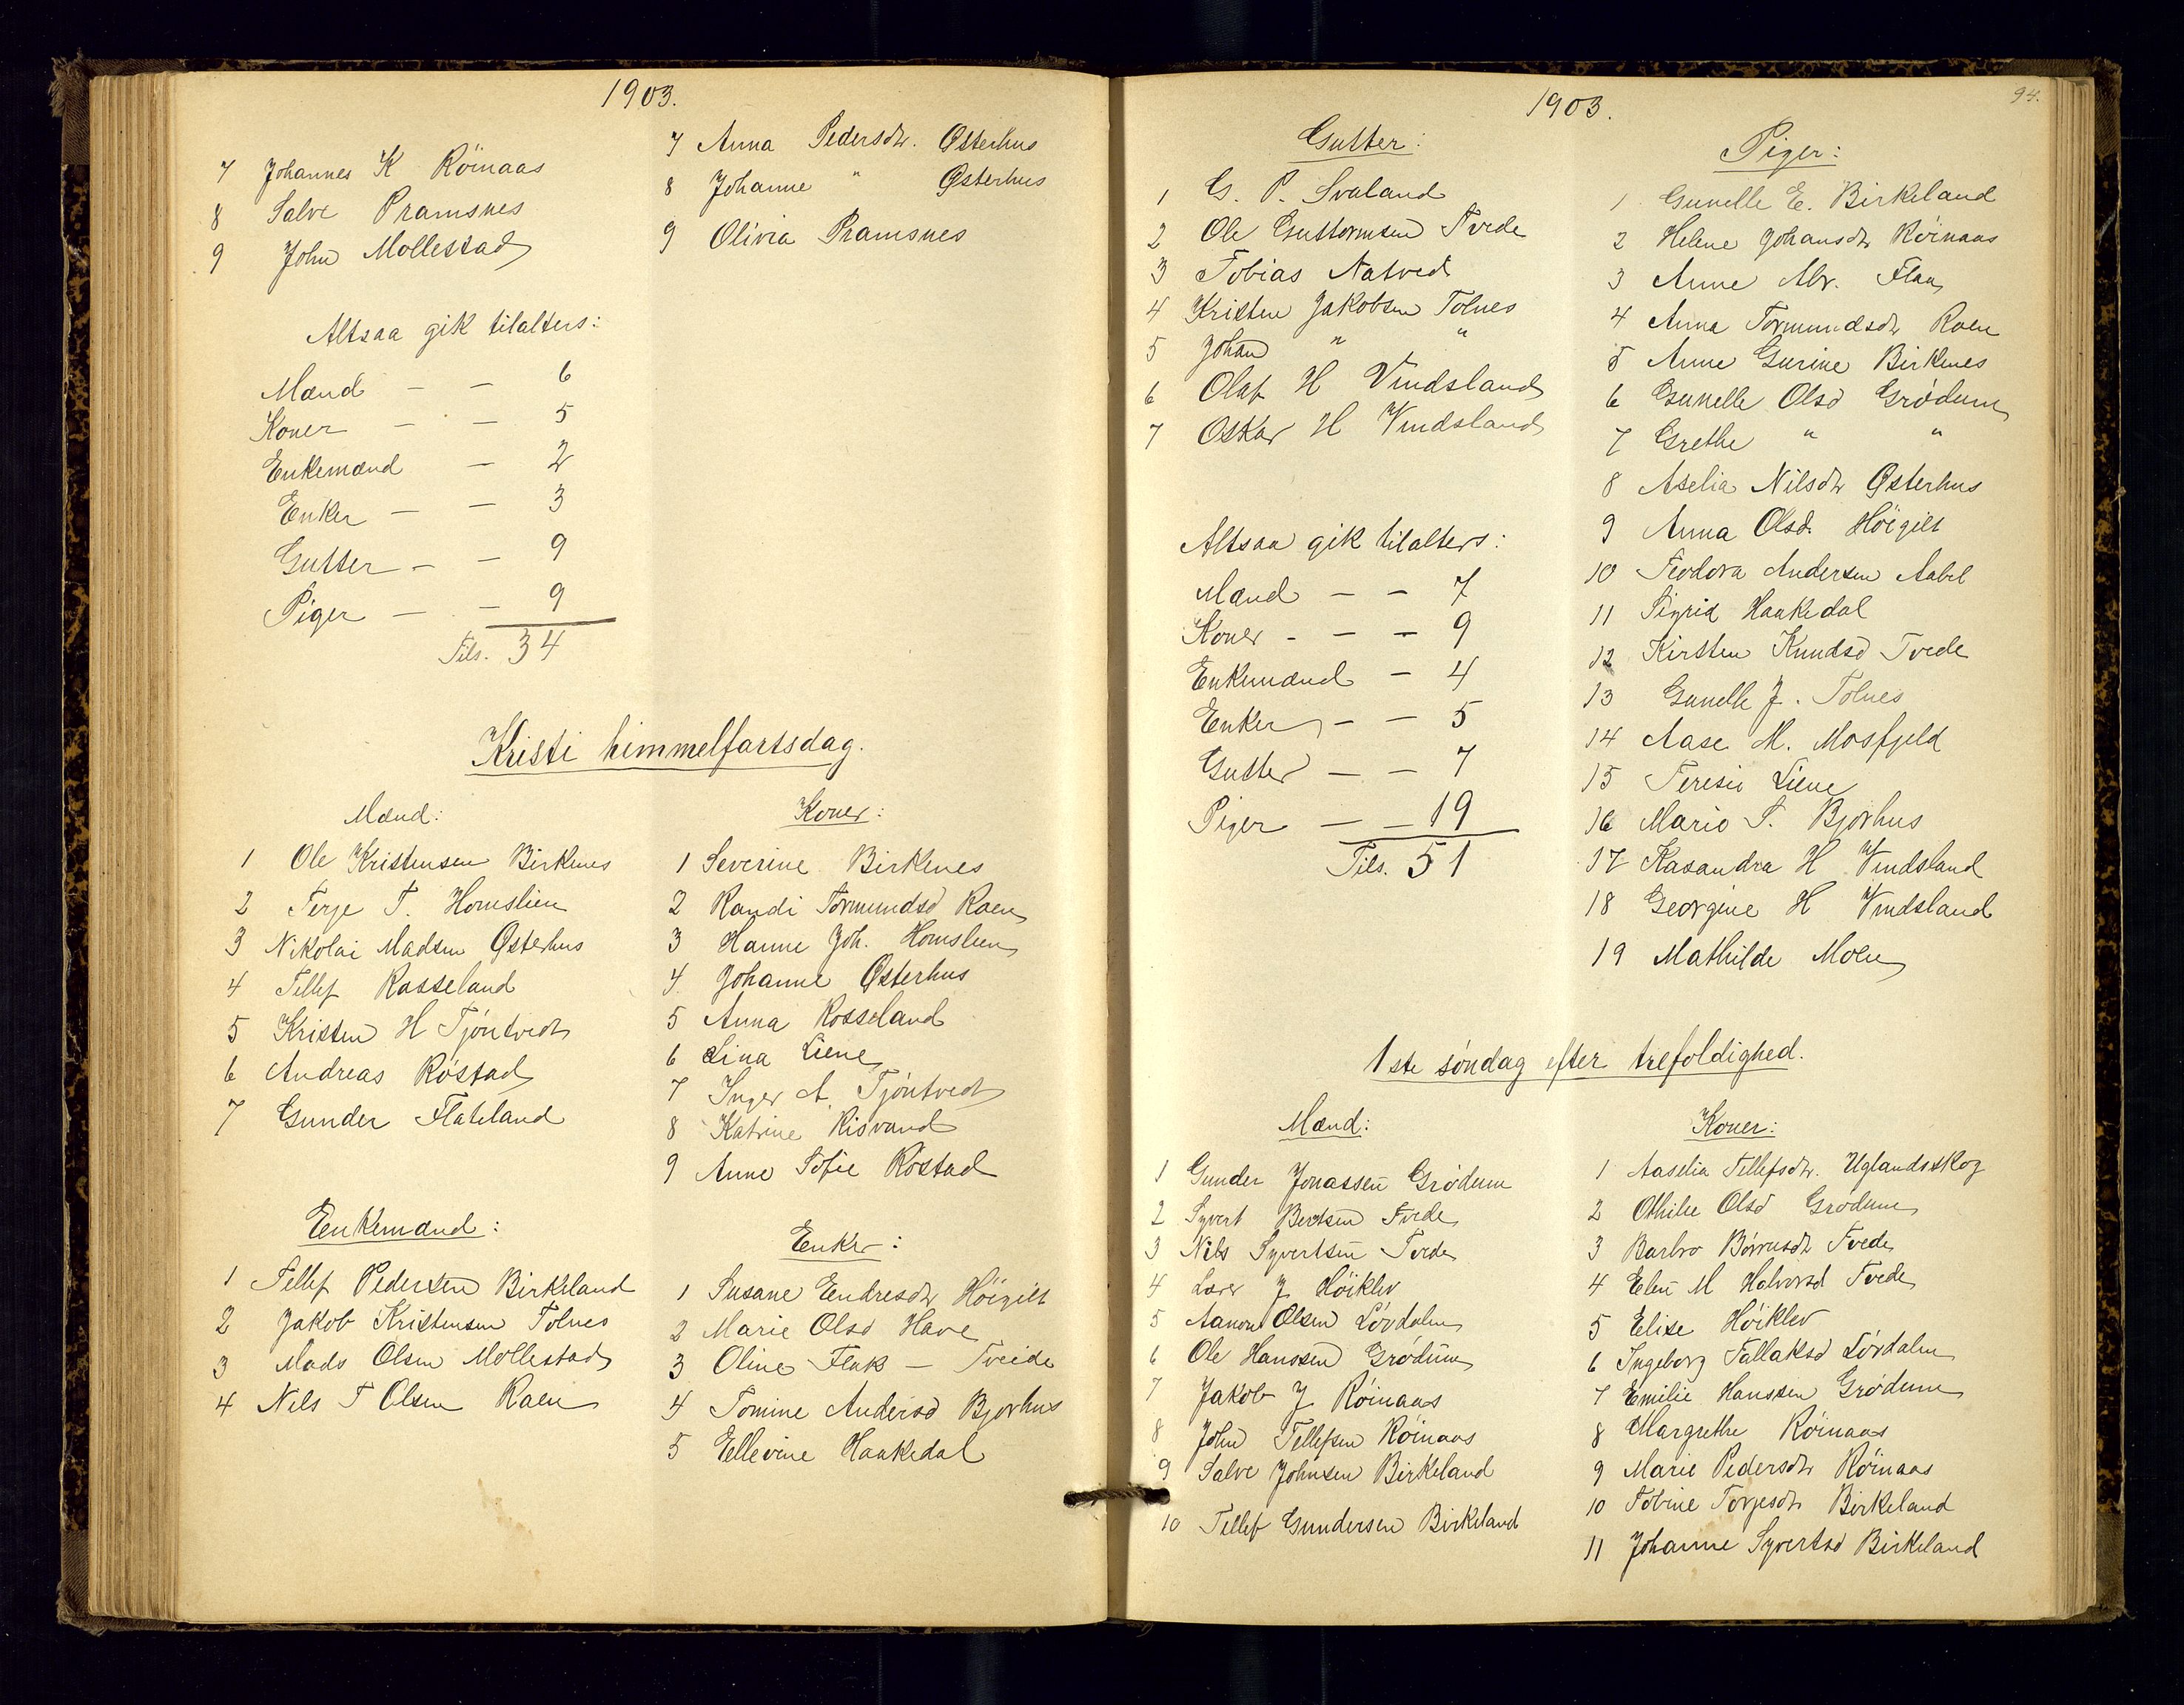 1903.
7 Johannes K Röinaas
8 Salve Pramsnes
9 John Mollestad
7 Anna Pedersdtr. Østerhus
8 Johanne " Østerhus
9 Olivia Pramsnes
Altsaa gik tilalters:
Mænd — — 6
Koner — — 5
Enkemænd — 2
Enker — — 3
Gutter — — 9
Piger — — 9
Tils. 34
Kristi himmelfartsdag.
Mænd:
1 Ole Kristensen Birkenes
2 Terje T. Homslien
3 Nikolai Madsen Østerhus
4 Tellef Rosseland
5 Kristen H Tjöntvedt
6 Andreas Röstad
7 Gunder Flakeland
Koner:
1 Severine Birkenes
2 Randi Tormundsd Raen
3 Hanne Joh. Homslien
4 Johanne Østerhus
5 Anna Rosseland
6 Lina Liene
7 Inger A. Tjöntvedt
8 Katrine Risvand
9 Anne Sofie Röstad
Enkemænd:
1 Tellef Pedersen Birkeland
2 Jakob Kristensen Tolnes
3 Mads Olsen Mollestad
4 Nils T Olsen Raen
Enker:
1 Susane Endresdtr Höigilt
2 Marie Olsd Have
3 Oline Flak — Tveide
4 Tomine Andersd Bjorhus
5 Ellevine Haakedal
1903.
94.
Gutter:
1 G. P. Svaland
2 Ole Guttormsen Tvede
3 Tobias Natved
4 Kristen Jakobsen Tolnes
5 Johan " "
6 Olaf H Vindsland
7 Oskar H Vindsland
Altsaa gik tilalters:
Mænd — — 7
Koner — — 9
Enkemænd — 4
Enker — — 5
Gutter — — 7
Piger — — 19
Tils. 51
Piger:
1 Gunelle E. Birkeland
2 Helene Johansdtr Röinaas
3 Anne Flaa
4 Anna Tormundsdtr Raen
5 Anne Gurine Birkenes
6 Gunelle Olsd Grödum
7 Grethe " "
8 Aselia Nilsdtr Østerhus
9 Anna Olsd. Höigilt
10 Teodora Andersen Aabel
11 Sigrid Haakedal
12 Kirsten Knudsd Tvede
13 Gunelle J. Tolnes
14 Aase M. Mosfjeld
15 Teresie Liene
16 Marie S. Bjorhus
17 Kasandra H Vindsland
18 Georgine H Vindsland
19 Mathilde Moen
1ste söndag efter trefoldighed.
Mænd:
1 Gunder Jonassen Grödum
2 Syvert Bertsen Tvede
3 Nils Syvertsen Tvede
4 Lærer J Höiklev
5 Aanon Olsen Lövdalen
6 Ole Hanssen Grödum
7 Jakob J Röinaas
8 John Tellefsen Röinaas
9 Salve Johnsen Birkeland
10 Tellef Gundersen Birkeland
Koner:
1 Aaselia Tellefsdtr. Uglandsskog
2 Othilie Olsd Grödum
3 Barbro Tvede
4 Elen M Halvorsd Tvede
5 Elise Höiklev
6 Ingeborg Tallaksd Lövdalen
7 Emilie Hanssen Grödum
8 Margrethe Röinaas
9 Marie Pedersdtr Röinaas
10 Tobine Torjesdtr Birkeland
11 Johanne Syvertsd Birkeland